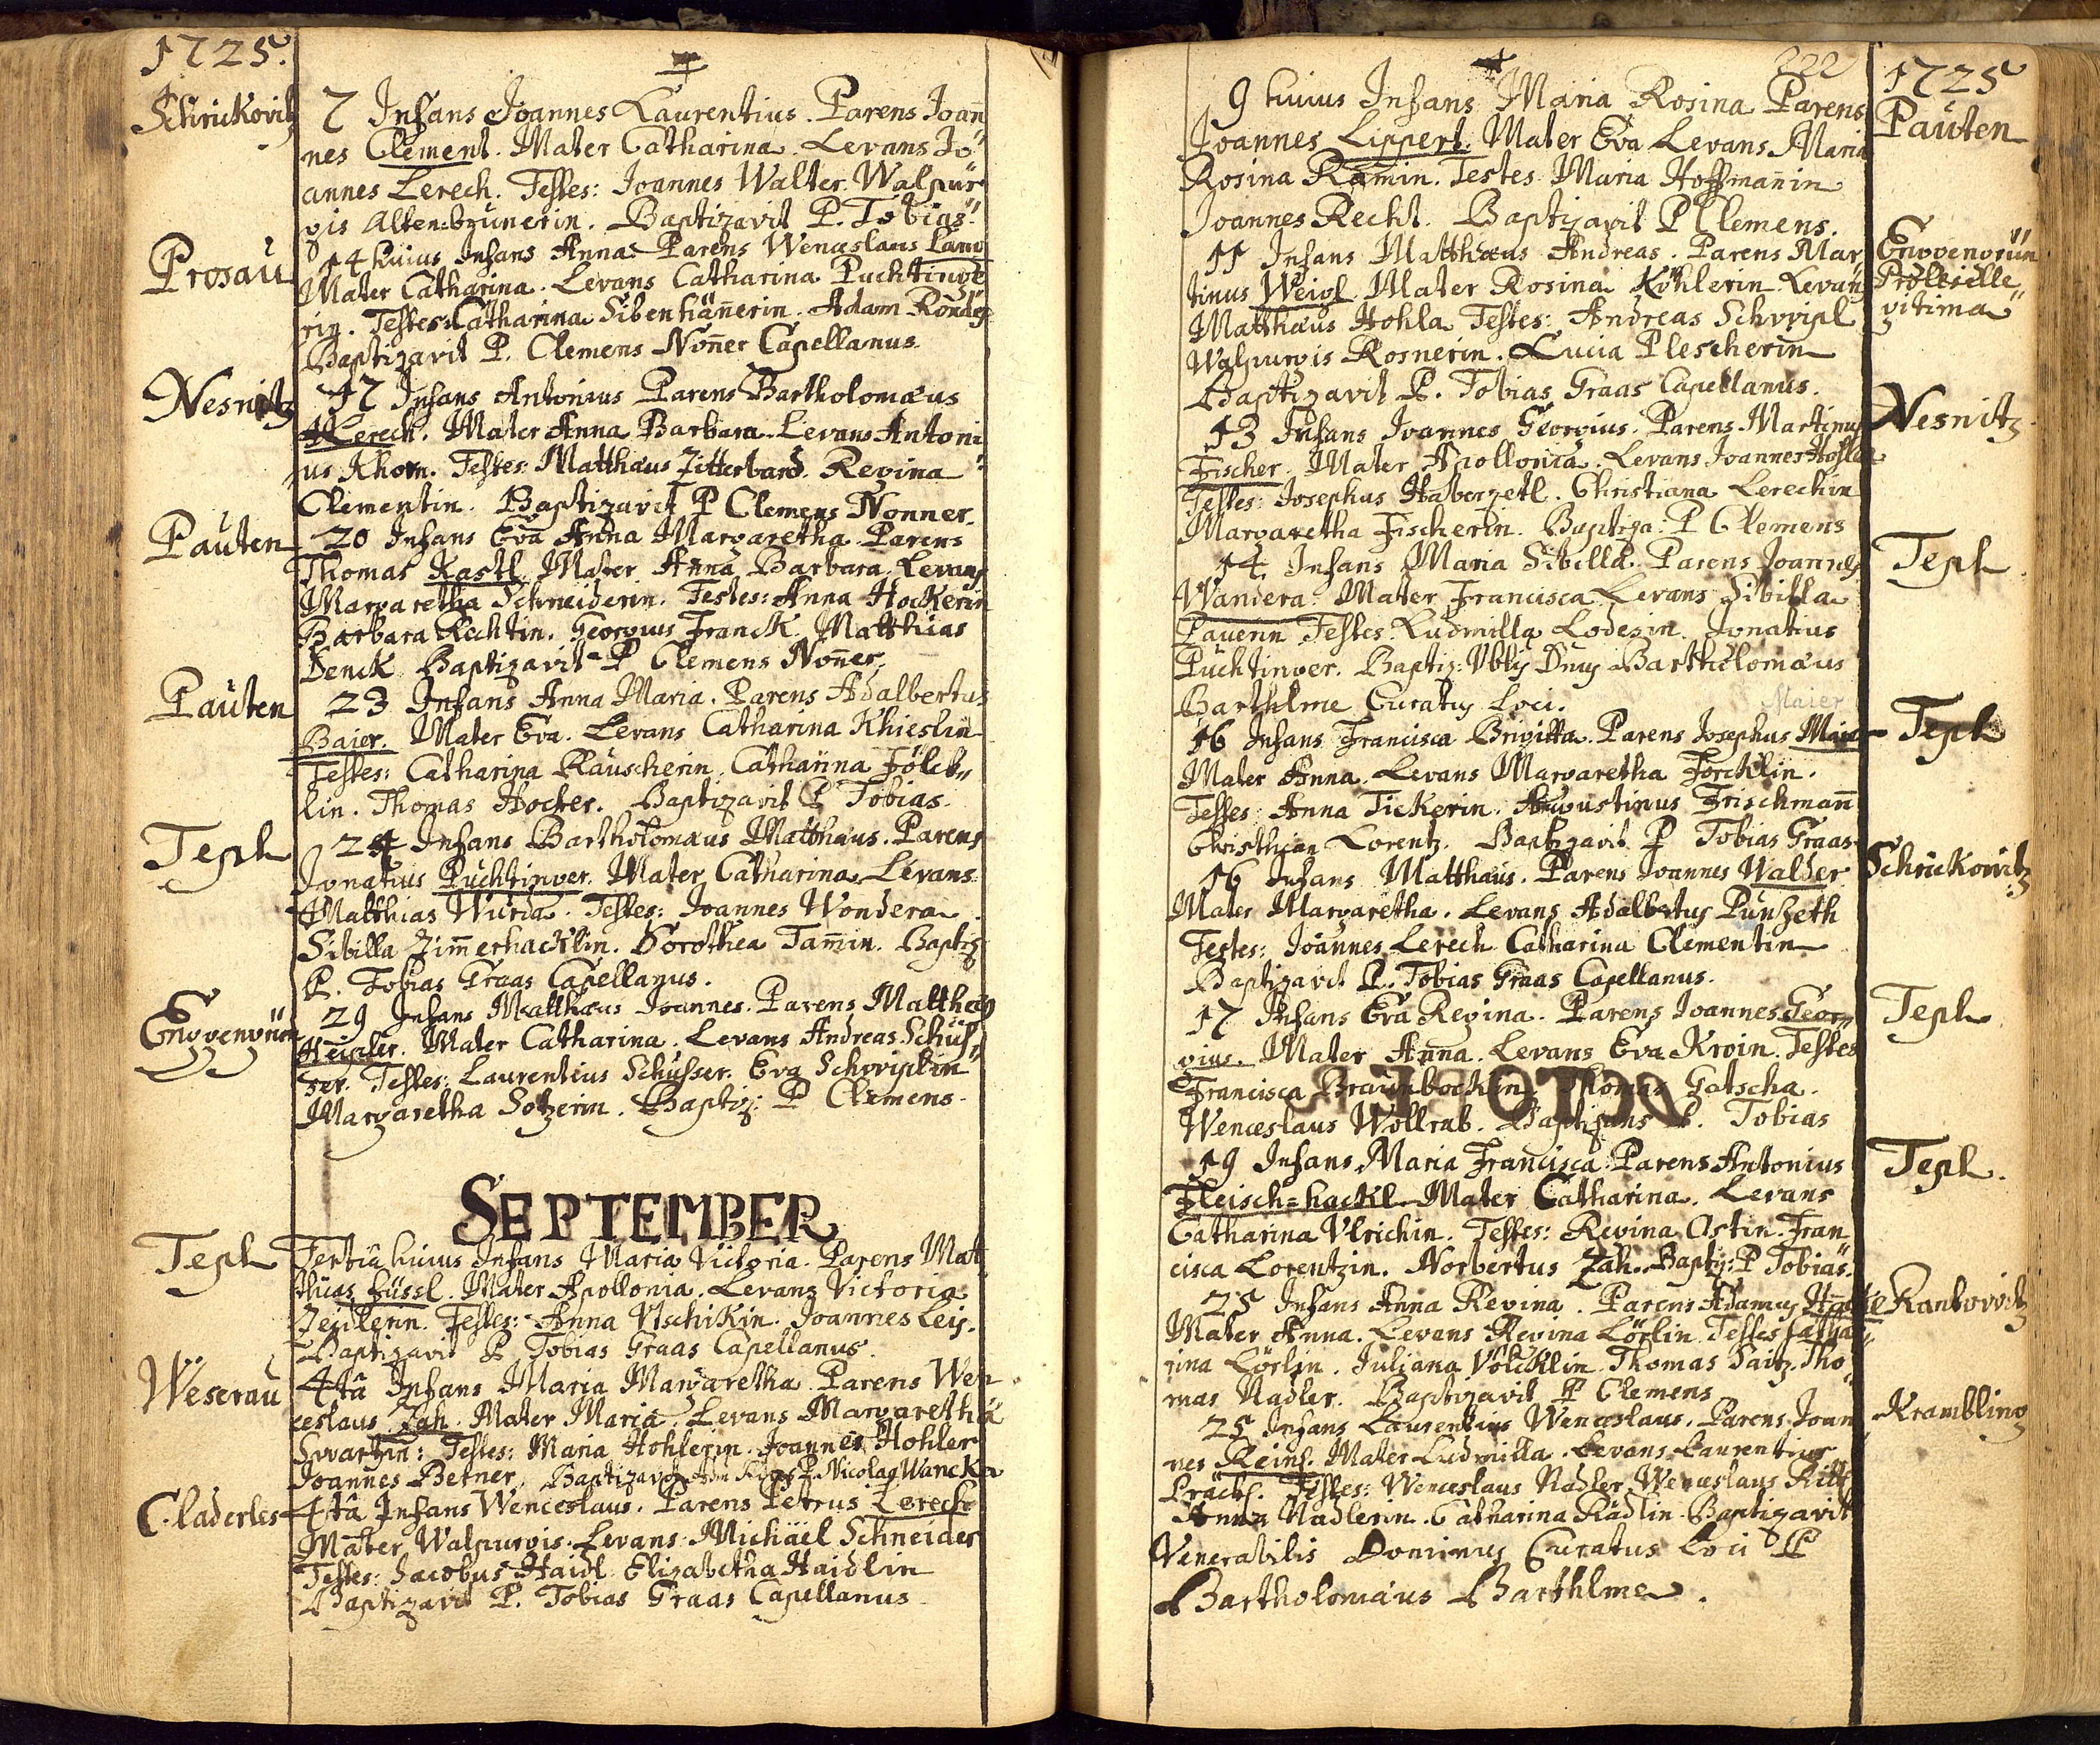 1725.
Schrickovitz
7 Infans Joannes Laurentius. Parens Joan̄
nes Clement. Mater Catharina. Levans Jo
annes Lerech. Testes: Joannes Walter. Walpur
gis Altenbrunerin. Baptizavit P. Tobias.
Prosau
14 huius Infans Anna. Parens Wenceslaus Lang
Mater Catharina. Levans Catharina Puchtinge
rin. Testes: Catharina Sibenhän̄erin. Adam
Baptizavit P. Clemens Non̄er Capellanus.
Nesnitz
17 Infans Antonius Parens Bartholomæus
Lerech. Mater Anna Barbara. Levans Antoni
us Khorn. Testes: Matthæus Zitterbard. Regina
Clementin. Baptizavit P Clemens Nonner.
Pauten
20 Infans Eva Anna Margaretha. Parens
Thomas Kastl. Mater Anna Barbara. Levans
Margaretha Schneiderin. Testes: Anna Hockerin
Barbara Rechtin. Georgius Franck. Matthias
Denck. Baptizavit P Clemens Non̄er.
Pauten
23 Infans Anna Maria. Parens Adalbertus
Baier. Mater Eva. Levans Catharina Khieslin
Testes: Catharina Rauscherin. Catharina Fölck
lin. Thomas Hocker. Baptizavit P Tobias.
Tepl
24 Infans Bartholomæus Matthæus. Parens
Ignatius Puchtinger. Mater Catharina. Levans
Matthias Wurda. Testes: Joannes Wondera
Sibilla Zim̄erhacklin. Dorothea Tam̄in. Baptiz:
P. Tobias Graas Capellanus.
Enggengrün
29 Infans Matthæus Joannes. Parens Matthæus
Heipler. Mater Catharina. Levans Andreas Schus
ser. Testes: Laurentius Schusser. Eva Schgriplin
Margaretha Sotzerin. Baptiz: P Clemens.
SEPTEMBER
Tepl
Tertiâ huius Infans Maria Victoria. Parens Mat
thias Füssl. Mater Apollonia. Levans Victoria
Zeidlerin. Testes: Anna Utschikin. Joannes Leis.
Baptizavit P Tobias Graas Capellanus.
Weserau
4tâ Infans Maria Margaretha. Parens Wen
ceslaus Zah. Mater Maria. Levans Margaretha
Swartzin: Testes: Maria Hohlerin. Joannes Hohler
Joannes Betner. Baptizavit P. Nicolaus Wancka
Claderles
4tâ Infans Wenceslaus. Parens Petrus Lerech
Mater Walpurgis. Levans Michäel Schneider
Testes: Jacobus Haidl. Elizabetha Haidlin
Baptizavit P. Tobias Graas Capellanus.
222
1725
Pauten
9 huius Infans Maria Rosina Parens
Joannes Lippert. Mater Eva Levans Maria
Rosina Ram̄in. Testes Maria Hoffman̄in
Joannes Recht. Baptizavit P Clemens.
Enggengrün
Prolis ille
gitima
11 Infans Matthæus Andreas. Parens Mar
tinus Weigl. Mater Rosina Köhlerin Levans
Matthæus Hohla Testes: Andreas Schgripl
Walpurgis Rosnerin. Lucia Plescherin
Baptizavit P. Tobias Graas Capellanus.
Nesnitz
13 Infans Joannes Georgius. Parens Martinus
Fischer. Mater Apollonia. Levans Joannes
Testes: Josephus Haberzetl. Christiana Lerechin
Margaretha Fischerin. Baptiza: P Clemens
Tepl
14 Infans Maria Sibilla. Parens Joannes
Wandera. Mater Francisca Levans Sibilla
Pauerin Testes: Ludmilla Lodezin. Ignatius
Puchtinger. Baptiz: Vblis Dnus Bartholomæus
Barthlme Curatus Loci.
Maier
Tepl
16 Infans Francisca Brigitta. Parens Josephus Maier
Mater Anna. Levans Margaretha Förcklin.
Testes: Anna Tickerin. Augustinus Frischman̄
Christian Lorentz. Baptizavit P Tobias Graas
Schrickovitz
16 Infans Matthæus. Parens Joannes Walder
Mater Margaretha. Levans Adalbertus Punzeth
Testes: Joannes Lerech Catharina Clementin
Baptizavit P. Tobias Graas Capellanus.
Tepl
17 Infans Eva Regina. Parens Joannes Geor
gius. Mater Anna. Levans Eva Kroin. Testes
Francisca Braunbocklin. Thomas Gatscha.
Wenceslaus Wollrab. Baptizans P. Tobias
Tepl.
19 Infans Maria Francisca. Parens Antonius
Fleisch=hackl. Mater Catharina. Levans
Catharina Ulrichin. Testes: Regina Ostin. Fran
cisca Lorentzin. Norbertus Zah. Baptiz: P Tobias.
Rankovitz
25 Infans Anna Regina. Parens Adamus
Mater Anna. Levans Regina Lörlin Testes Catha
rina Lörlin. Juliana Völcklin Thomas Saitz. Tho
mas Nadler. Baptizavit P Clemens
Krambling
25 Infans Laurentius Wenceslaus. Parens Joan
nes Reinl. Mater Ludmilla. Levans Laurentius
Präckl. Testes: Wenceslaus Nadler Wenceslaus Kittl
Anna Nadlerin. Catharina Rädlin. Baptizavit
Venerabilis Dominus Curatus Loci P
Bartholomæus Barthlme.